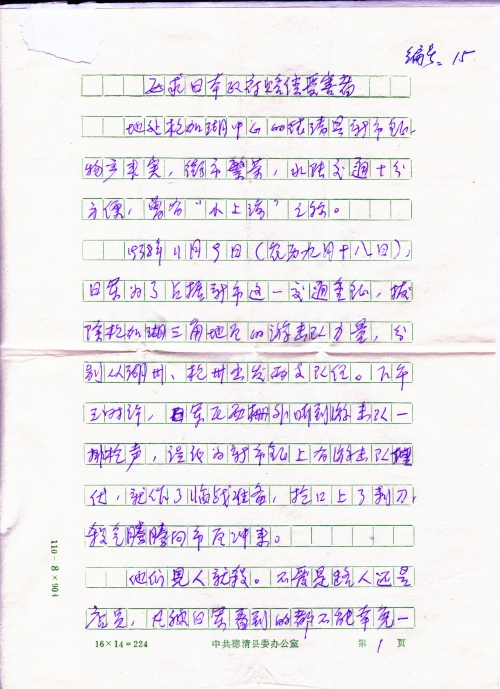 编号: 15
要求日本政府赔偿受害者
地处杭加湖中心的德清县新市镇,
物产丰富,街市繁荣,水陆交通十分
方便,曾有“小上海”之称。
1938年11月9日(农历九月十八日),
日军为了占据新市这一交通重镇,拔
除杭加湖三角地区的游击队力量,分
别从湖州、杭州出发两支队伍。下午
三时许,日军在西栅外听到游击队一
排枪声,误认为新市镇上有游击队埋
伏,就作了临战准备,枪口上了刺刀
杀气腾腾向市区冲来。
他们见人就杀。不管是路人还是
店员,凡被日军看到的都不能幸免一
110-8×904
16×14=224 中共德清县委办公室 第 1 页